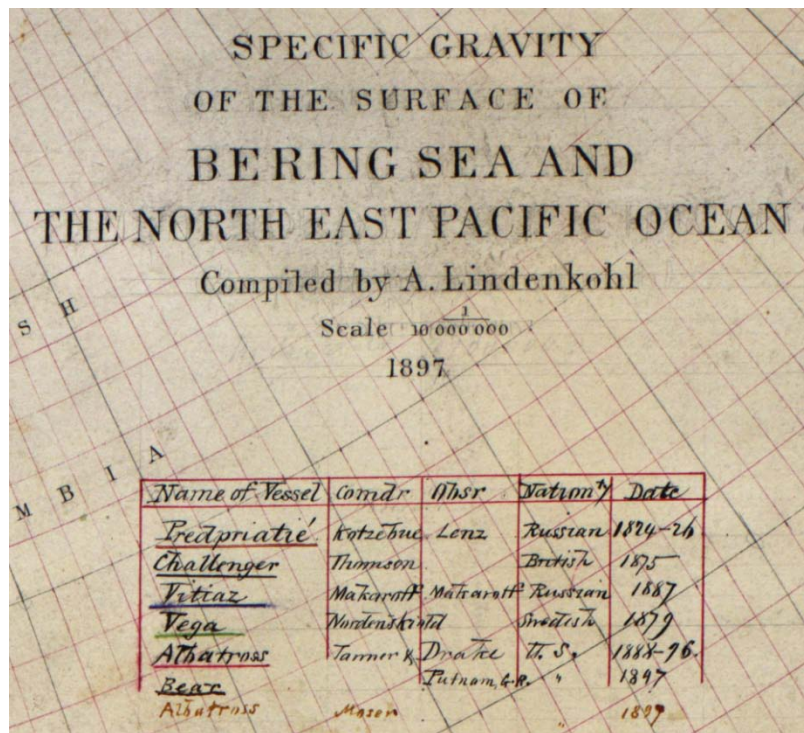 SPECIFIC GRAVITY
OF THE SURFACE OF
BERING SEA AND
THE NORTH EAST PACIFIC OCEAN
Compiled by A. Lindenkohl
Scale 1/10 000 000
1897
S H
M B I A
Name of Vessel Comdr Obsr Nation'ty Date
Predpriatié Kotzebue Lenz Russian 1824-26
Challenger Thomson British 1875
Vitiaz Makaroff Makaroff Russian 1887
Vega Nordenskiold Swedish 1879
Albatross Tanner & Drake U.S. 1888-96.
Bear Putnam, G.R. " 1897
Albatross Moser " 1897